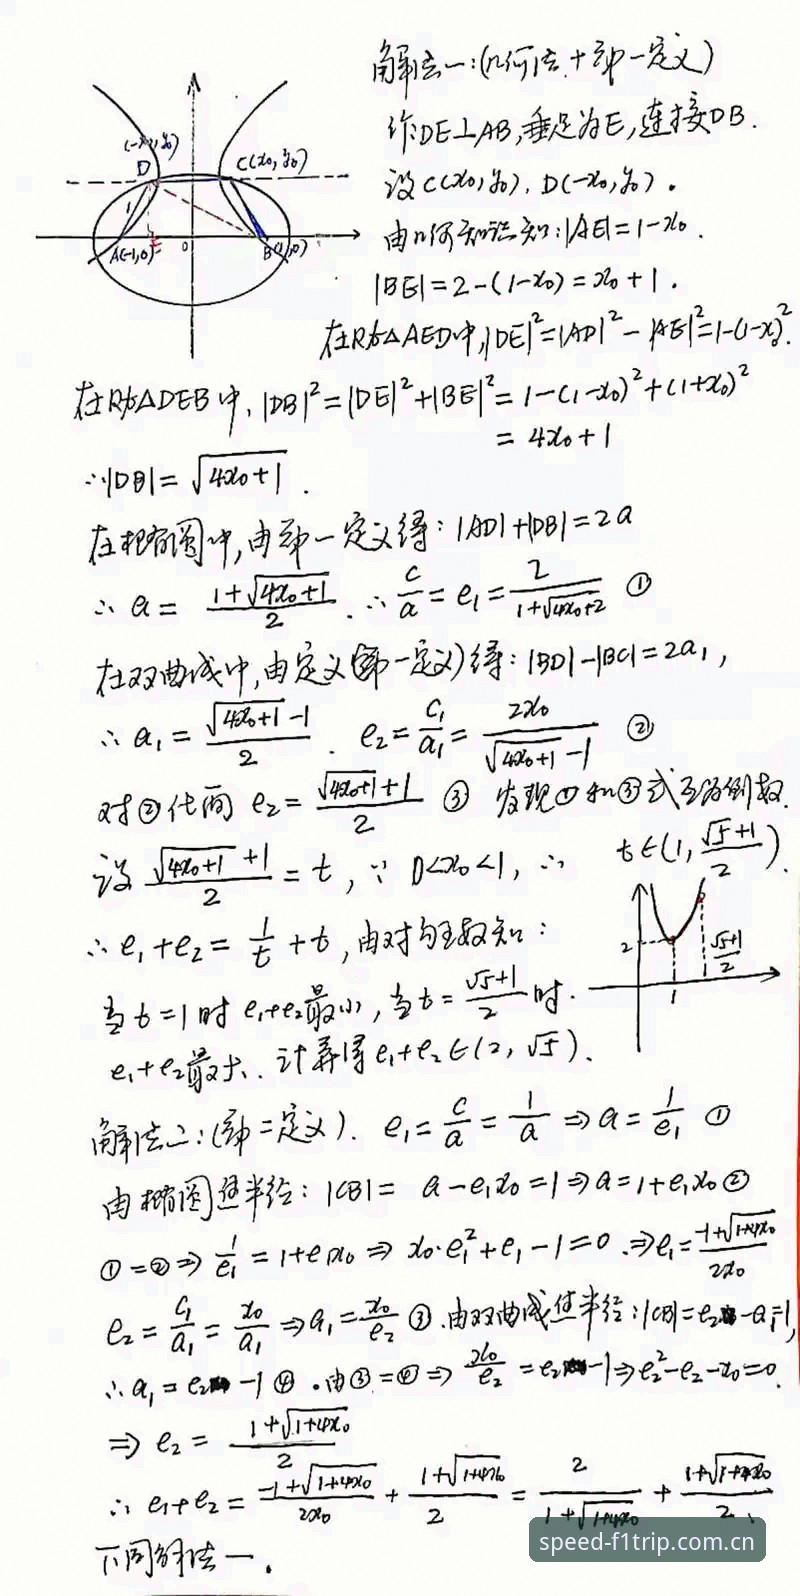 解法一:(几何法+第一定义)
作DE⊥AB,垂足为E,连接DB.
设C(x₀,y₀), D(-x₀,y₀).
由几何知识知:|AE|=1-x₀.
|BE|=2-(1-x₀)=x₀+1.
(-x₀,y₀)
D
C(x₀,y₀)
1
A(-1,0)
E
0
B(1,0)
在Rt△AED中,|DE|²=|AD|²-|AE|²=1-(1-x₀)².
在Rt△DEB中,|DB|²=|DE|²+|BE|²=1-(1-x₀)²+(1+x₀)²
=4x₀+1
∴|DB|=√(4x₀+1).
在椭圆中,由第一定义得:|AD|+|DB|=2a
∴a=(1+√(4x₀+1))/2.∴c/a=e₁=2/(1+√(4x₀+2)) ①
在双曲线中,由定义(第一定义)得:|BD|-|BC|=2a₁,
∴a₁=(√(4x₀+1)-1)/2. e₂=c₁/a₁=2x₀/(√(4x₀+1)-1) ②
对②化简 e₂=(√(4x₀+1)+1)/2 ③ 发现①和③式互为倒数.
设(√(4x₀+1)+1)/2=t,∵0<x₀<1,∴t∈(1,(√5+1)/2).
∴e₁+e₂=1/t+t,由对勾函数知:
2
1
(√5+1)/2
当t=1时e₁+e₂最小,当t=(√5+1)/2时.
e₁+e₂最大.计算得e₁+e₂∈(2,√5).
解法二:(第二定义). e₁=c/a=1/a⇒a=1/e₁ ①
由椭圆焦半径:|CB|=a-e₁x₀=1⇒a=1+e₁x₀ ②
①=②⇒1/e₁=1+e₁x₀⇒x₀·e₁²+e₁-1=0.⇒e₁=(-1+√(1+4x₀))/2x₀
e₂=c₁/a₁=x₀/a₁⇒a₁=x₀/e₂ ③.由双曲线焦半径:|CB|=e₂-a₁=1,
∴a₁=e₂-1 ④.由③=④⇒x₀/e₂=e₂-1⇒e₂²-e₂-x₀=0.
⇒e₂=(1+√(1+4x₀))/2
∴e₁+e₂=(-1+√(1+4x₀))/2x₀+(1+√(1+4x₀))/2=2/(1+√(1+4x₀))+(1+√(1+4x₀))/2.
下同解法一.
speed-f1trip.com.cn